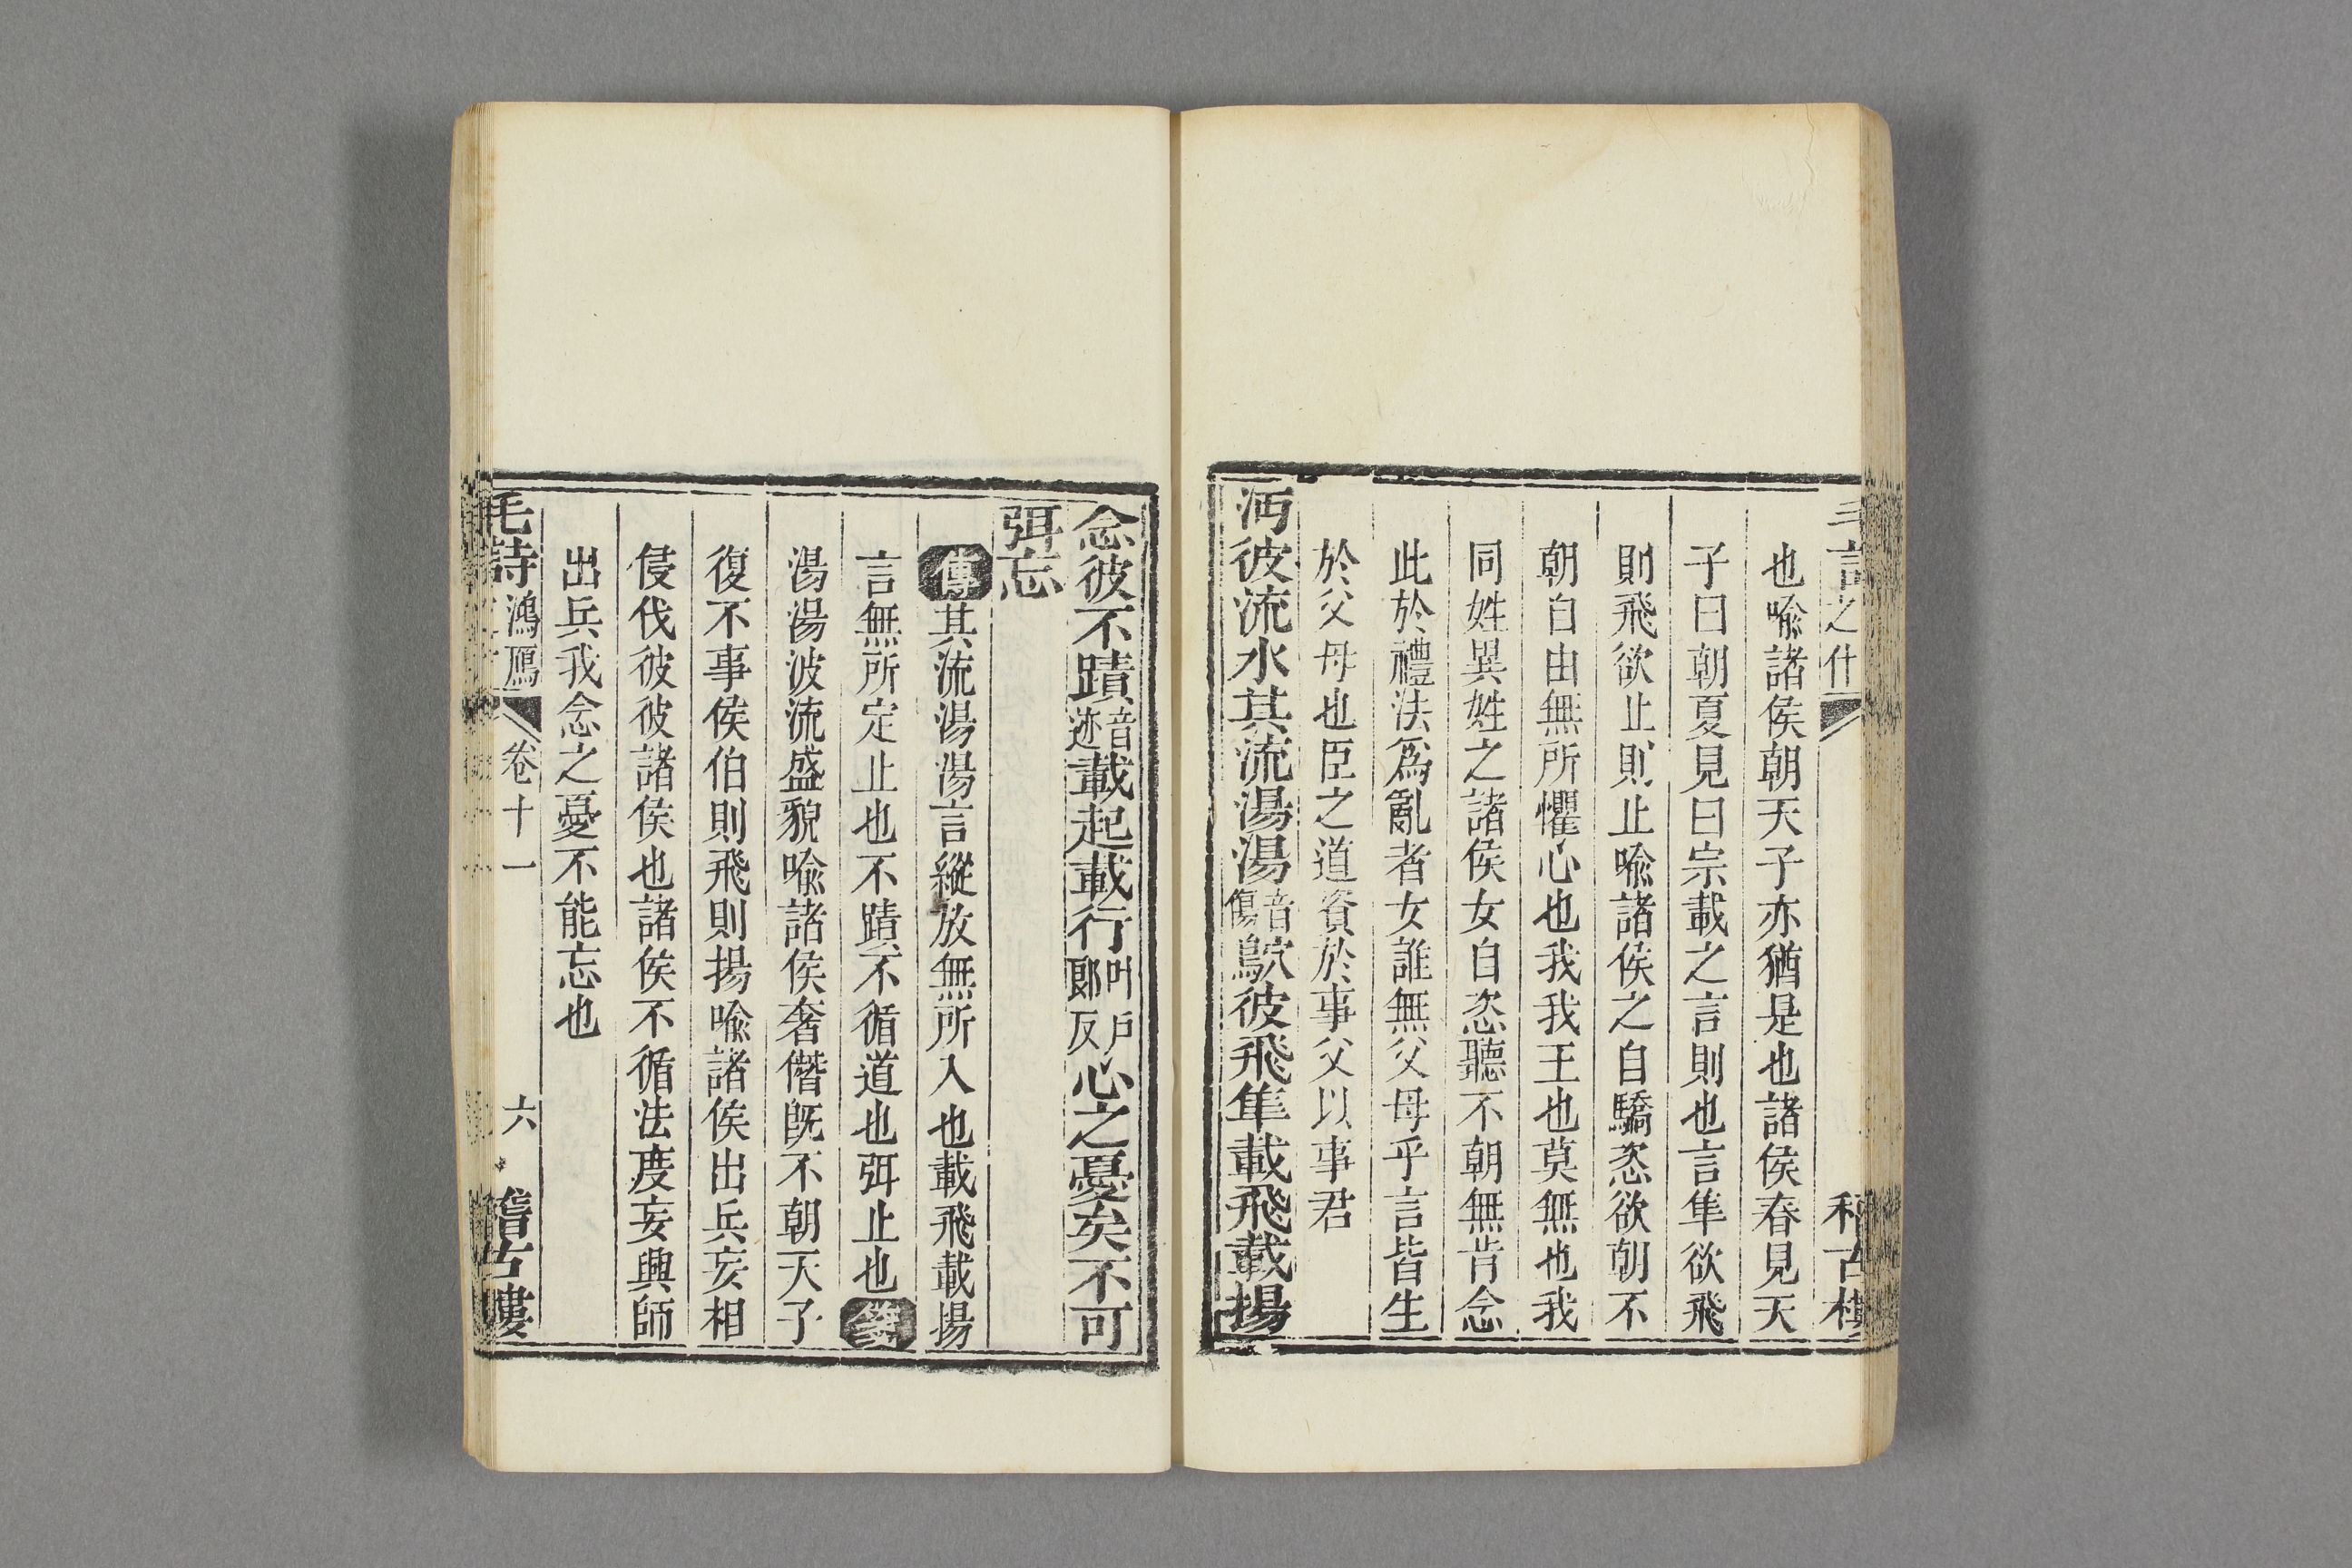 之什
也喩諸侯朝天子亦猶是也諸侯春見天
子曰朝夏見曰宗載之言則也言隼欲飛
則飛欲止則止喩諸侯之自驕恣欲朝不
朝自由無所懼心也我我王也莫無也我
同姓異姓之諸侯女自恣聽不朝無肯念
此於禮法爲亂者女誰無父母乎言皆生
於父母也臣之道資於事父以事君
沔彼流水其流湯湯音傷鴥彼飛隼載飛載揚
念彼不蹟音迹載起載行叶戶郞反心之憂矣不可
弭忘
傳其流湯湯言縱放無所入也載飛載揚
言無所定止也不蹟不循道也弭止也箋
湯湯波流盛貌喩諸侯奢僭旣不朝天子
復不事侯伯則飛則揚喩諸侯出兵妄相
侵伐彼彼諸侯也諸侯不循法度妄興師
出兵我念之憂不能忘也
毛詩鴻鴈 卷十一 六 稽古樓